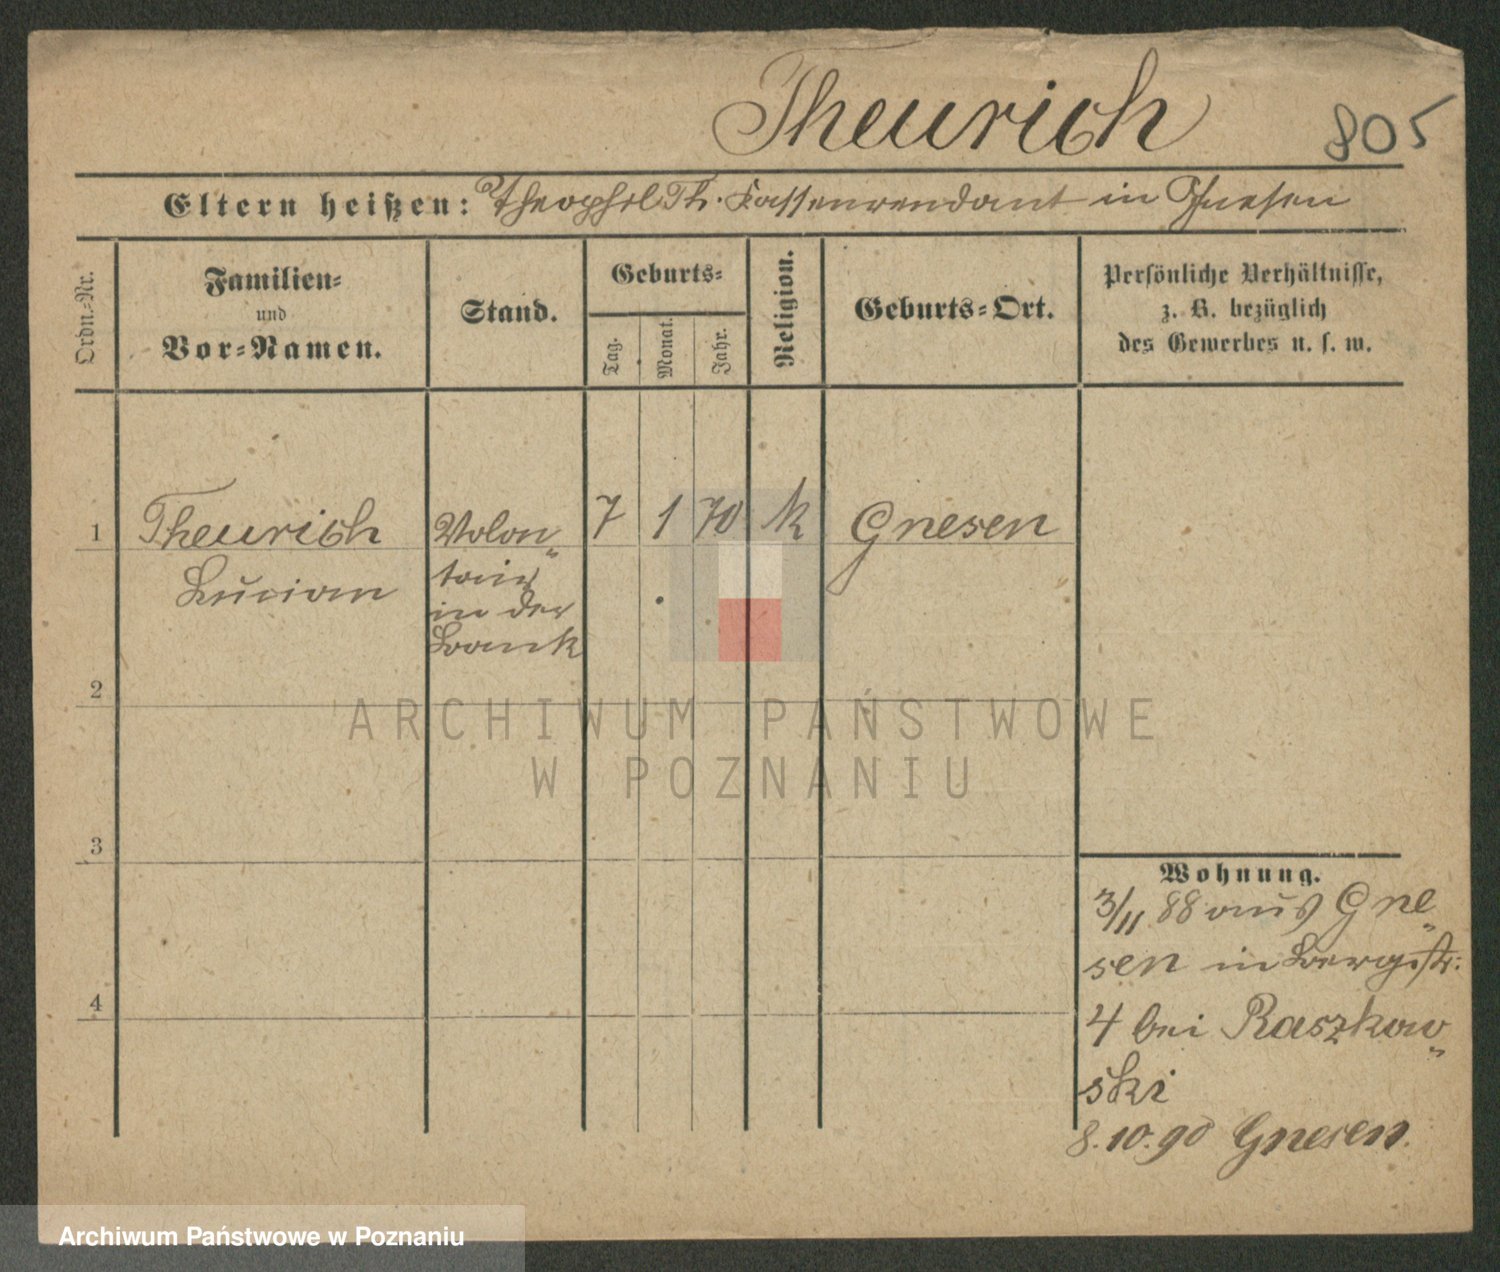 Theurich
805
Eltern heißen: Theophil Th. Kassenrendant in Gnesen
Ordn.-Nr.
Familien-
und
Vor-Namen.
Stand.
Geburts-
Tag.
Monat.
Jahr.
Religion.
Geburts-Ort.
Persönliche Verhältnisse,
z. B. bezüglich
des Gewerbes u. s. w.
1 Theurich Volon- 7 1 70 k Gnesen
Lucian tair
in der
Bank
2
3
4
Wohnung.
3/11 88 aus Gne-
sen in Bergstr.
4 bei Raszkow-
ski
8.10.90 Gnesen.
ARCHIWUM PAŃSTWOWE
W POZNANIU
Archiwum Państwowe w Poznaniu